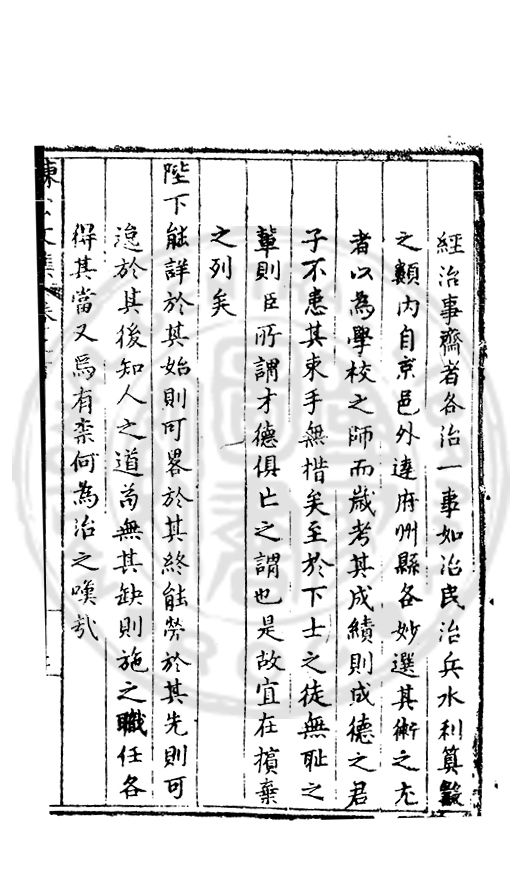 經治事齋者各治一事如治民治兵水利算數
之類内自京邑外達府州縣各妙選其術之尤
者以為學校之師而嵗考其成績則成德之君
子不患其束手無措矣至於下士之徒無耻之
輩則臣所謂才德俱亡之謂也是故宜在擯棄
之列矣
陛下能詳於其始則可畧於其終能勞於其先則可
逸於其後知人之道茍無其缺則施之職任各
得其當又焉有柰何為治之嘆哉